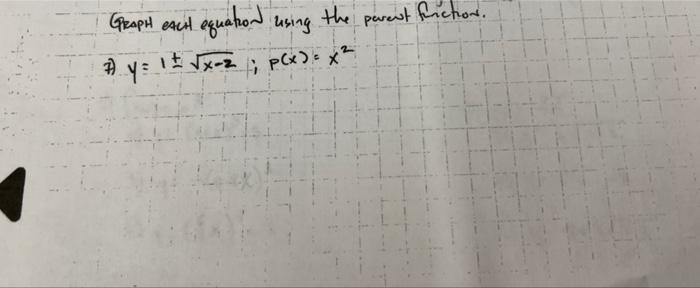 GRAPH EACH equation using the parent function.
7) y = 1 ± √x-2 ; p(x) = x²